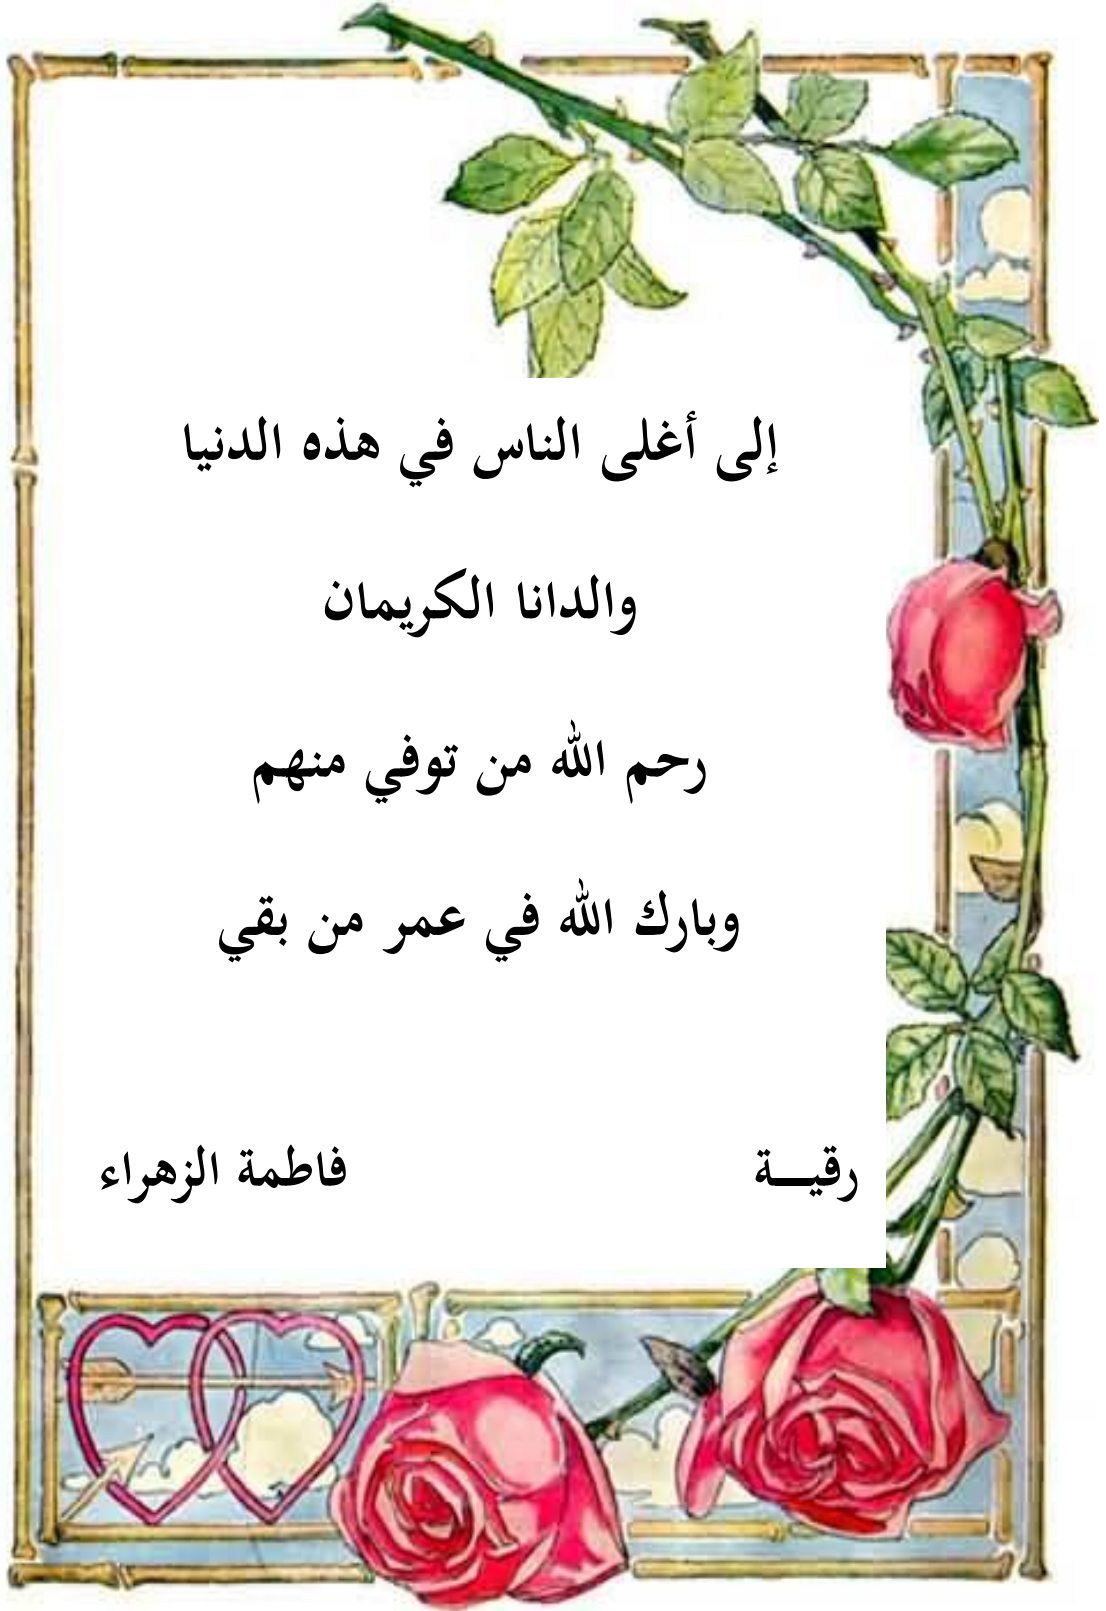 إلى أغلى الناس في هذه الدنيا
والدانا الكريمان
رحم الله من توفي منهم
وبارك الله في عمر من بقي
رقيـــة فاطمة الزهراء